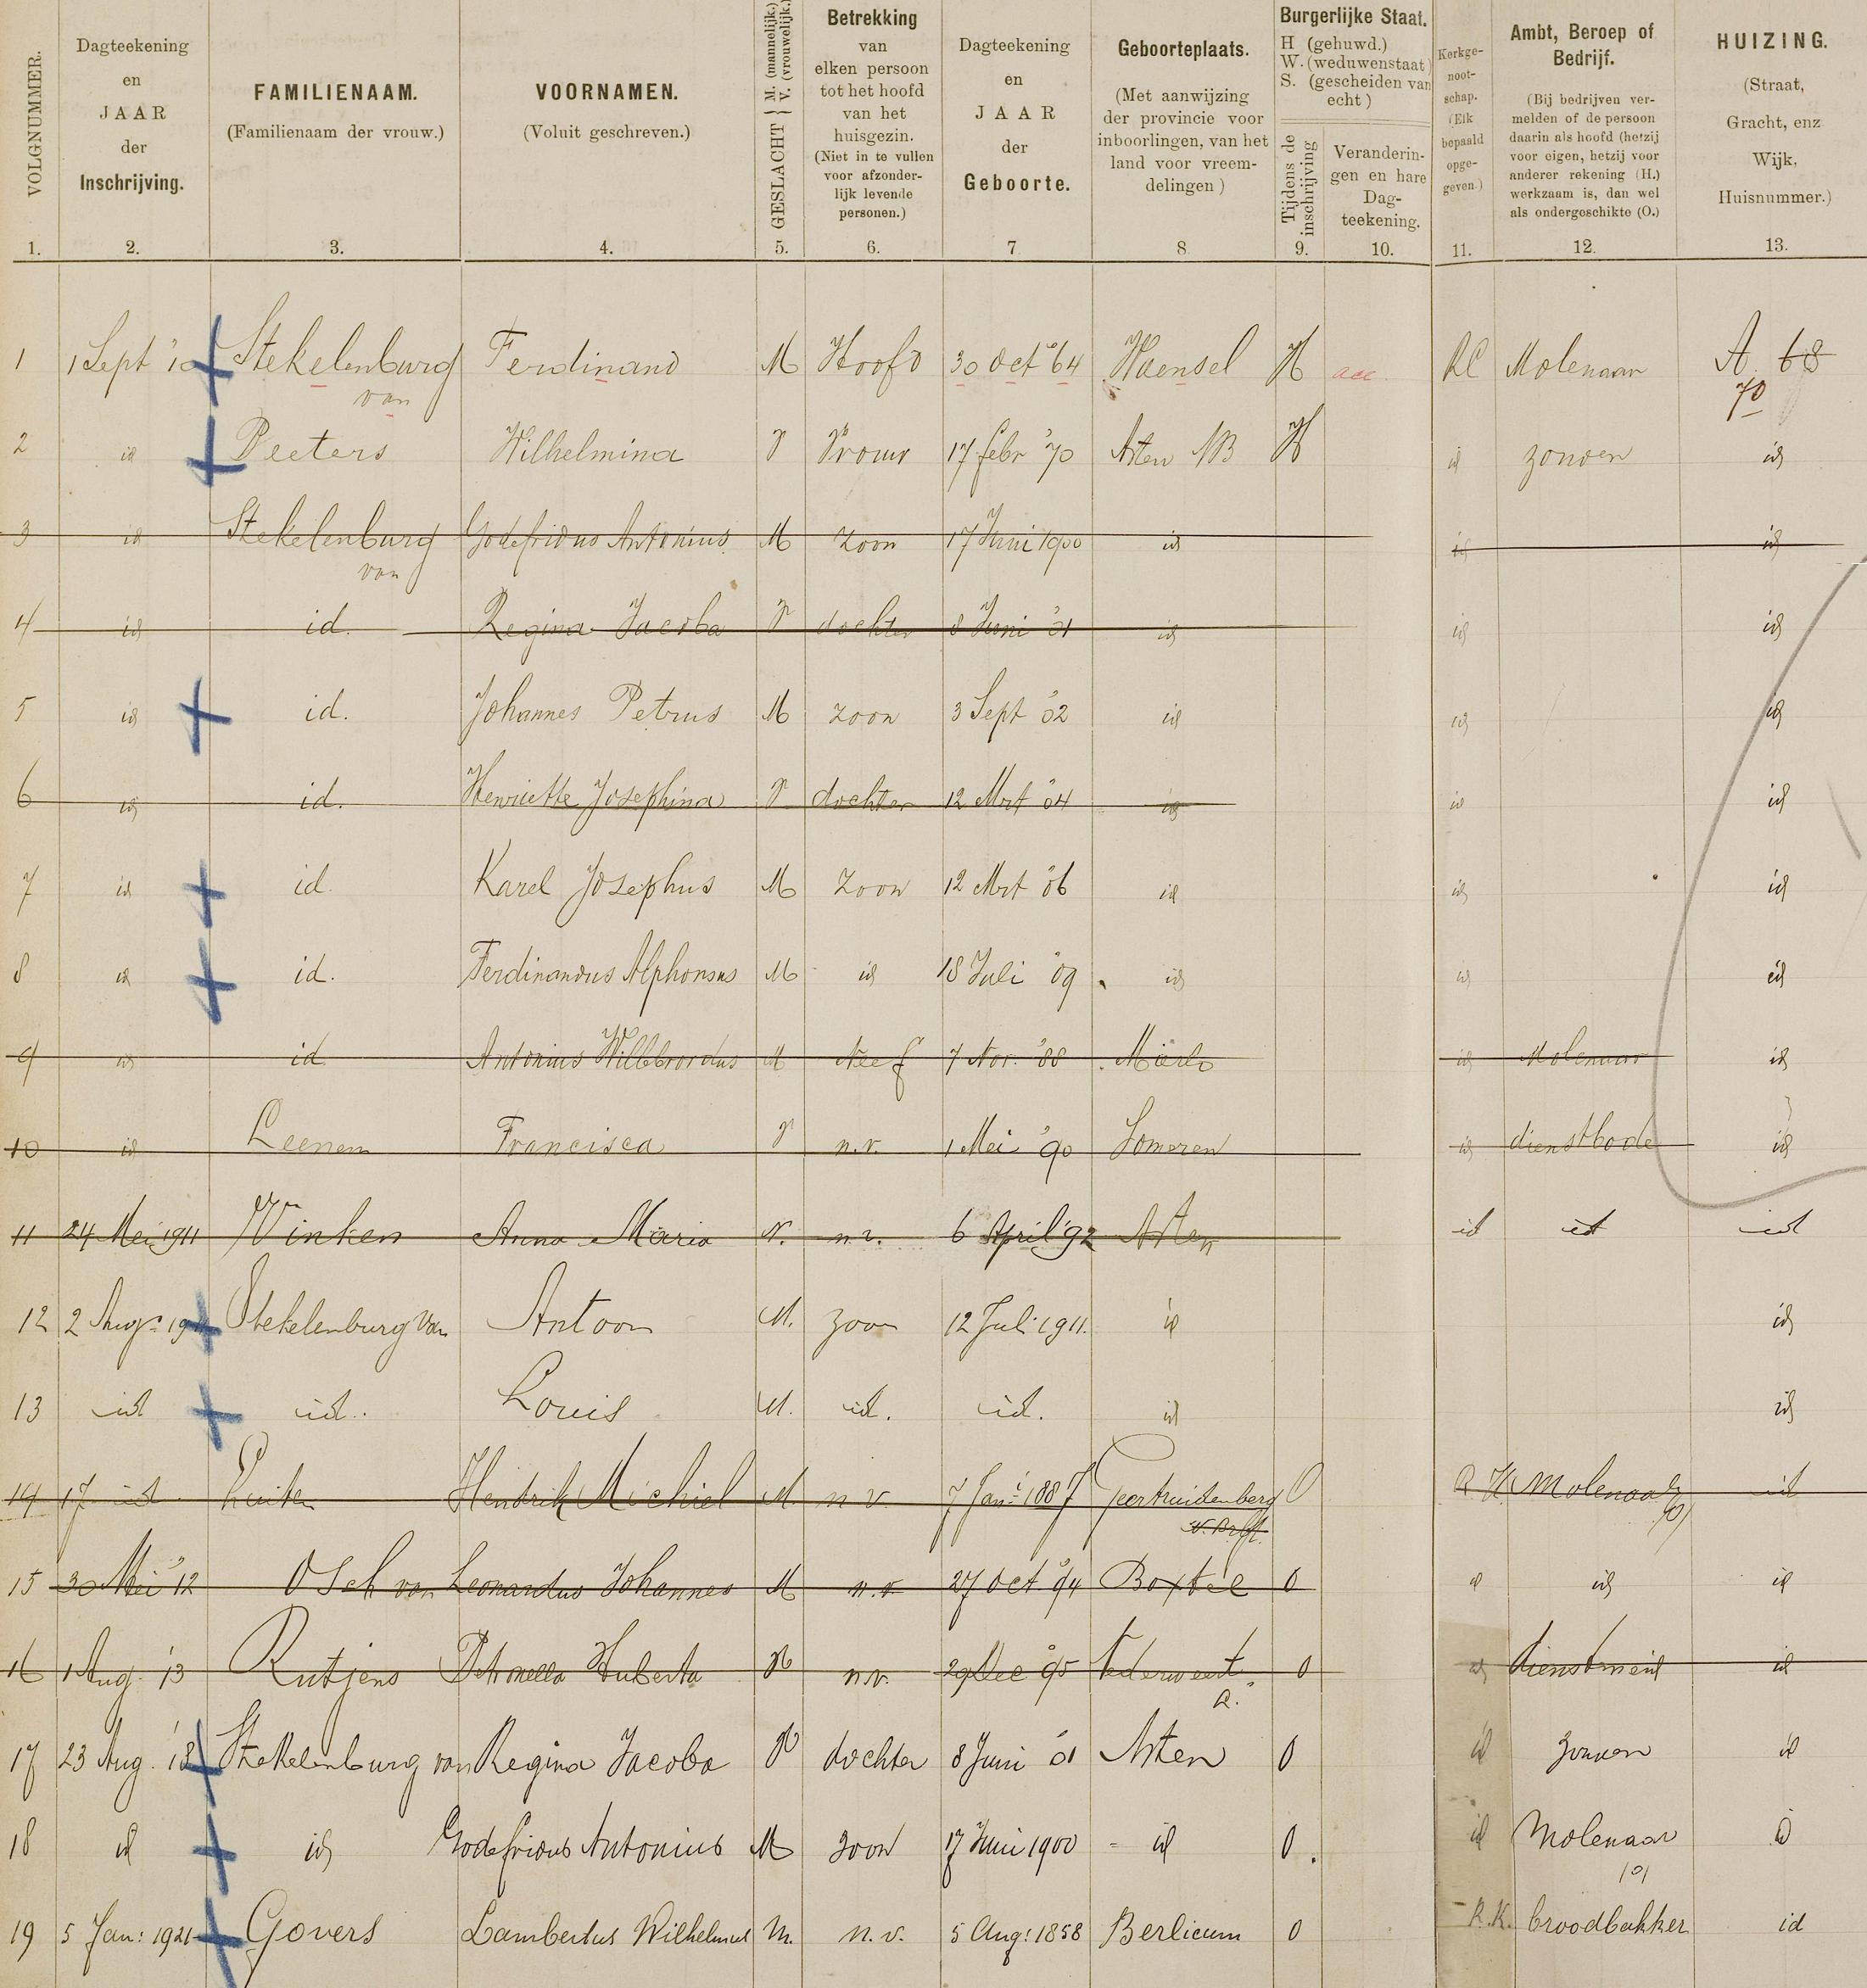 VOLGNUMMER.
Dagteekening
en
JAAR
der
Inschrijving.
FAMILIENAAM.
(Familienaam der vrouw.)
VOORNAMEN.
(Voluit geschreven.)
GESLACHT { M. (mannelijk.) V. (vrouwelijk.)
Betrekking
van
elken persoon
tot het hoofd
van het
huisgezin.
(Niet in te vullen
voor afzonder-
lijk levende
personen.)
Dagteekening
en
JAAR
der
Geboorte.
Geboorteplaats.
(Met aanwijzing
der provincie voor
inboorlingen, van het
land voor vreem-
delingen)
Burgerlijke Staat.
H (gehuwd.)
W. (weduwenstaat)
S. (gescheiden van
echt)
Tijdens de
inschrijving
Veranderin-
gen en hare
Dag-
teekening.
Kerkge-
noot-
schap.
(Elk
bepaald
opge-
geven.)
Ambt, Beroep of
Bedrijf.
(Bij bedrijven ver-
melden of de persoon
daarin als hoofd (hetzij
voor eigen, hetzij voor
anderer rekening (H.)
werkzaam is, dan wel
als ondergeschikte (O.)
HUIZING.
(Straat,
Gracht, enz
Wijk,
Huisnummer.)
1. 2. 3. 4. 5. 6. 7 8 9. 10. 11. 12. 13.
1 1 Sept '10 Stekelenburg Ferdinand M Hoofd 30 Oct '64 H acc. RC Molenaar A 68
van 70
2 id Peeters Wilhelmina V Vrouw 17 febr '70 Asten NB H id zonder id
3 id Stekelenburg Godefridus Antonius M zoon 17 Juni 1900 id id id
van
4 id id. Regina Jacoba V dochter 8 Juni '01 id id id
5 id id. Johannes Petrus M zoon 3 Sept '02 id id id
6 id id. Henriette Josephina V dochter 12 Mrt '04 id id id
7 id id. Karel Josephus M zoon 12 Mrt '06 id id id
8 id id. Ferdinandus Alphonsus M id 18 Juli '09 id id id
9 id id. Antonius Willebrordus M Neef 7 Nov. '88 Mierlo id Molenaar id
10 id Leenen Francisca V n.v. 1 Mei '90 Someren id dienstbode id
11 24 Mei 1911 Vinken Anna Maria V. n.v. 6 April '92 Asten id id id
12 2 Aug. Stekelenburg van Antoon M. zoon 12 Juli 1911. id id
13 id id. Louis M. id. id. id id
14 17 id Hendrik Michiel M. n.v. 7 Jan. 1887 Geertruidenberg O R.K. Molenaar id
N. Brbt. (O)
15 30 Mei '12 Osch van Leonardus Johannes M n.v 27 Oct '94 Boxtel O id id id
16 1 Aug. '13 Rutjens Petronella Huberta V n.v. 29 Dec '95 Nederweert O id dienstmeid id
17 23 Aug. '18 Stekelenburg van Regina Jacoba V dochter 8 Juni '01 Asten O id zonder id
18 id id Godefridus Antonius M zoon 17 Juni 1900 id O. id Molenaar id
(O)
19 5 Jan: 1921 Govers Lambertus Wilhelmus M. n.v. 5 Aug: 1858 Berlicum O R.K. broodbakker id